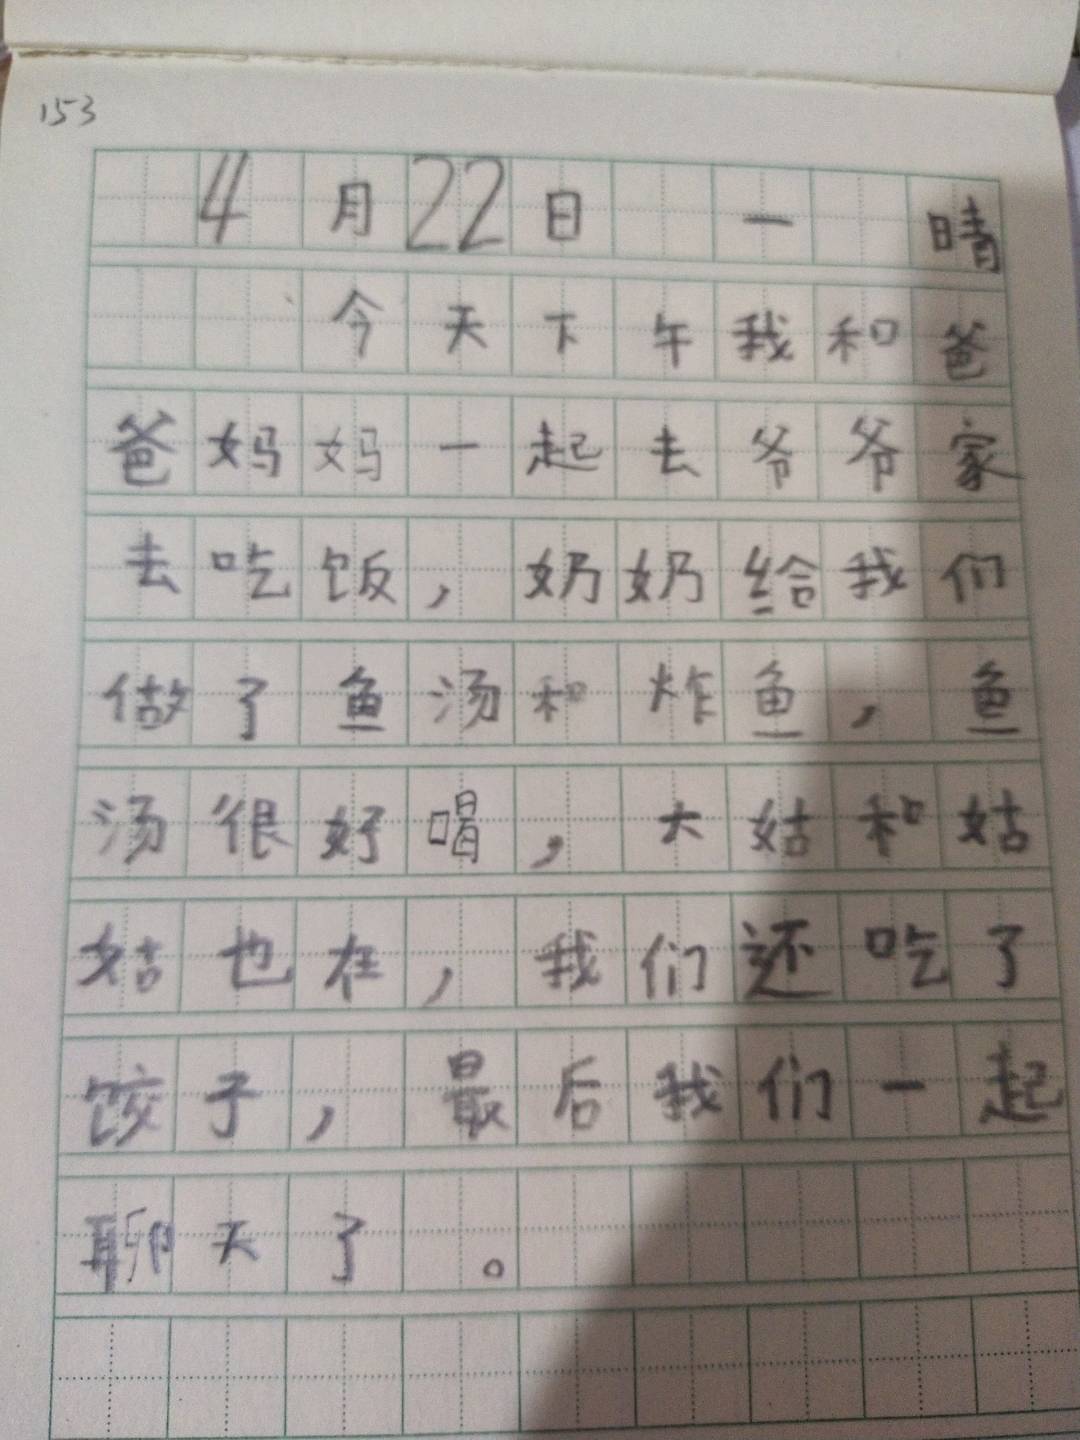 153
4月22日 一 晴
今天下午我和爸
爸妈妈一起去爷爷家
去吃饭，奶奶给我们
做了鱼汤和炸鱼，鱼
汤很好喝，大姑和姑
姑也在，我们还吃了
饺子，最后我们一起
聊天了。